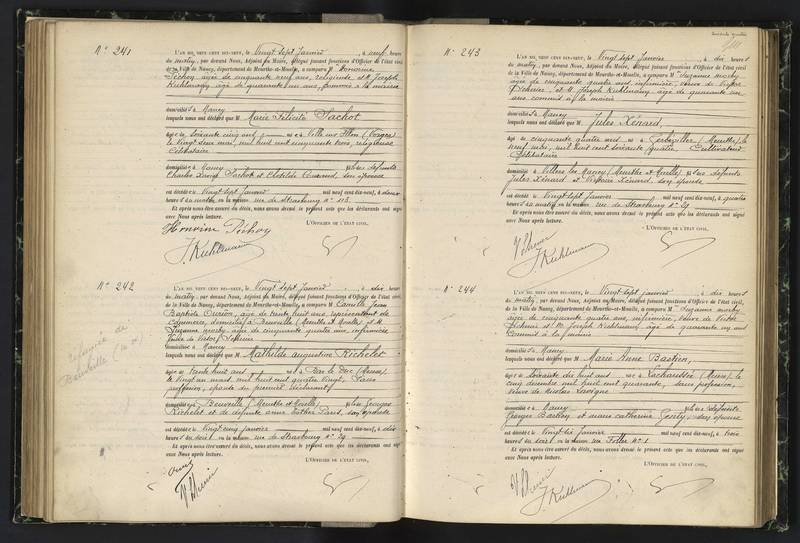 N° 241
L'AN MIL NEUF CENT DIX-NEUF, le Vingt sept janvier, à neuf heures
du matin, par devant Nous, Adjoint au Maire, délégué faisant fonctions d'Officier de l'état civil
de la Ville de Nancy, département de Meurthe-et-Moselle, a comparu M Honorine
Péchoy, âgée de cinquante neuf ans, religieuse et M Joseph
Kuhlmann, âgé de quarante un ans, commis à la mairie
domicilié à Nancy
lesquels nous ont déclaré que Marie Félicité Sachot
âgé de soixante cinq ans, né à Ville sur Illon (Vosges)
le vingt mai, mil huit cent cinquante trois, religieuse
Célibataire
domicilié à Nancy fille de défunts
Charles Sachot et Clotilde son épouse
est décédée le Vingt sept janvier mil neuf cent dix-neuf, à deux
heures du matin en la maison rue de Strasbourg n° 113
Et après nous être assuré du décès, nous avons dressé le présent acte que les déclarants ont signé
avec Nous après lecture.
L'OFFICIER DE L'ÉTAT CIVIL,
Honorine Péchoy
J. Kuhlmann
N° 242
L'AN MIL NEUF CENT DIX-NEUF, le Vingt sept janvier, à dix heures
du matin, par devant Nous, Adjoint au Maire, délégué faisant fonctions d'Officier de l'état civil
de la Ville de Nancy, département de Meurthe-et-Moselle, a comparu M Camille Jean
Baptiste, âgé de trente huit ans, représentant de
commerce, domicilié à Beuveille (Meurthe et Moselle) et M
Suzanne, âgée de cinquante quatre ans, infirmière
Veuve de Victor
domiciliée à Nancy
lesquels nous ont déclaré que Mathilde Augustine Richelet
âgé de trente huit ans né à Bar le Duc (Meuse)
le vingt un mars, mil huit cent quatre vingt, sans
profession, épouse du premier déclarant
domiciliée à Beuveille (Meurthe et Moselle) fille de Georges
Richelet et de défunte Anne Esther, son épouse
est décédée le Vingt cinq janvier mil neuf cent dix-neuf, à dix
heures du soir en la maison rue de Strasbourg n° 29
Et après nous être assuré du décès, nous avons dressé le présent acte que les déclarants ont signé
avec Nous après lecture.
L'OFFICIER DE L'ÉTAT CIVIL,
Réfugiée de
Beuveille (M et M)
N° 243
L'AN MIL NEUF CENT DIX-NEUF, le Vingt sept janvier, à dix heures
du matin, par devant Nous, Adjoint au Maire, délégué faisant fonctions d'Officier de l'état civil
de la Ville de Nancy, département de Meurthe-et-Moselle, a comparu M Suzanne
âgée de cinquante quatre ans, infirmière, veuve de Victor
et M Joseph Kuhlmann, âgé de quarante un
ans commis à la mairie
domicilié à Nancy
lesquels nous ont déclaré que Jules Xénard,
âgé de cinquante quatre ans né à Gerbéviller (Meurthe) le
neuf, mil huit cent soixante quatre, Cultivateur
Célibataire
domicilié à Villers les Nancy (Meurthe et Moselle) fils de défunts
Jules Xénard et, son épouse
est décédé le Vingt sept janvier mil neuf cent dix-neuf, à quatre
heures du matin en la maison rue de Strasbourg n° 29
Et après nous être assuré du décès, nous avons dressé le présent acte que les déclarants ont signé
avec Nous après lecture.
L'OFFICIER DE L'ÉTAT CIVIL,
J. Kuhlmann
N° 244
L'AN MIL NEUF CENT DIX-NEUF, le Vingt sept janvier, à dix heures
du matin, par devant Nous, Adjoint au Maire, délégué faisant fonctions d'Officier de l'état civil
de la Ville de Nancy, département de Meurthe-et-Moselle, a comparu M Suzanne
âgée de cinquante quatre ans, infirmière, veuve de Victor
et M Joseph Kuhlmann, âgé de quarante un ans
commis à la mairie
domicilié à Nancy
lesquels nous ont déclaré que Marie Anne Bastien,
âgé de soixante dix huit ans né à Lachaussée (Meuse) le
cinq décembre mil huit cent quarante, sans profession,
Veuve de Nicolas
domiciliée à Nancy fille de défunts
Georges Bastien et Anne Catherine, son épouse
est décédée le Vingt six janvier mil neuf cent dix-neuf, à trois
heures du soir en la maison rue n° 1
Et après nous être assuré du décès, nous avons dressé le présent acte que les déclarants ont signé
avec Nous après lecture.
L'OFFICIER DE L'ÉTAT CIVIL,
J. Kuhlmann